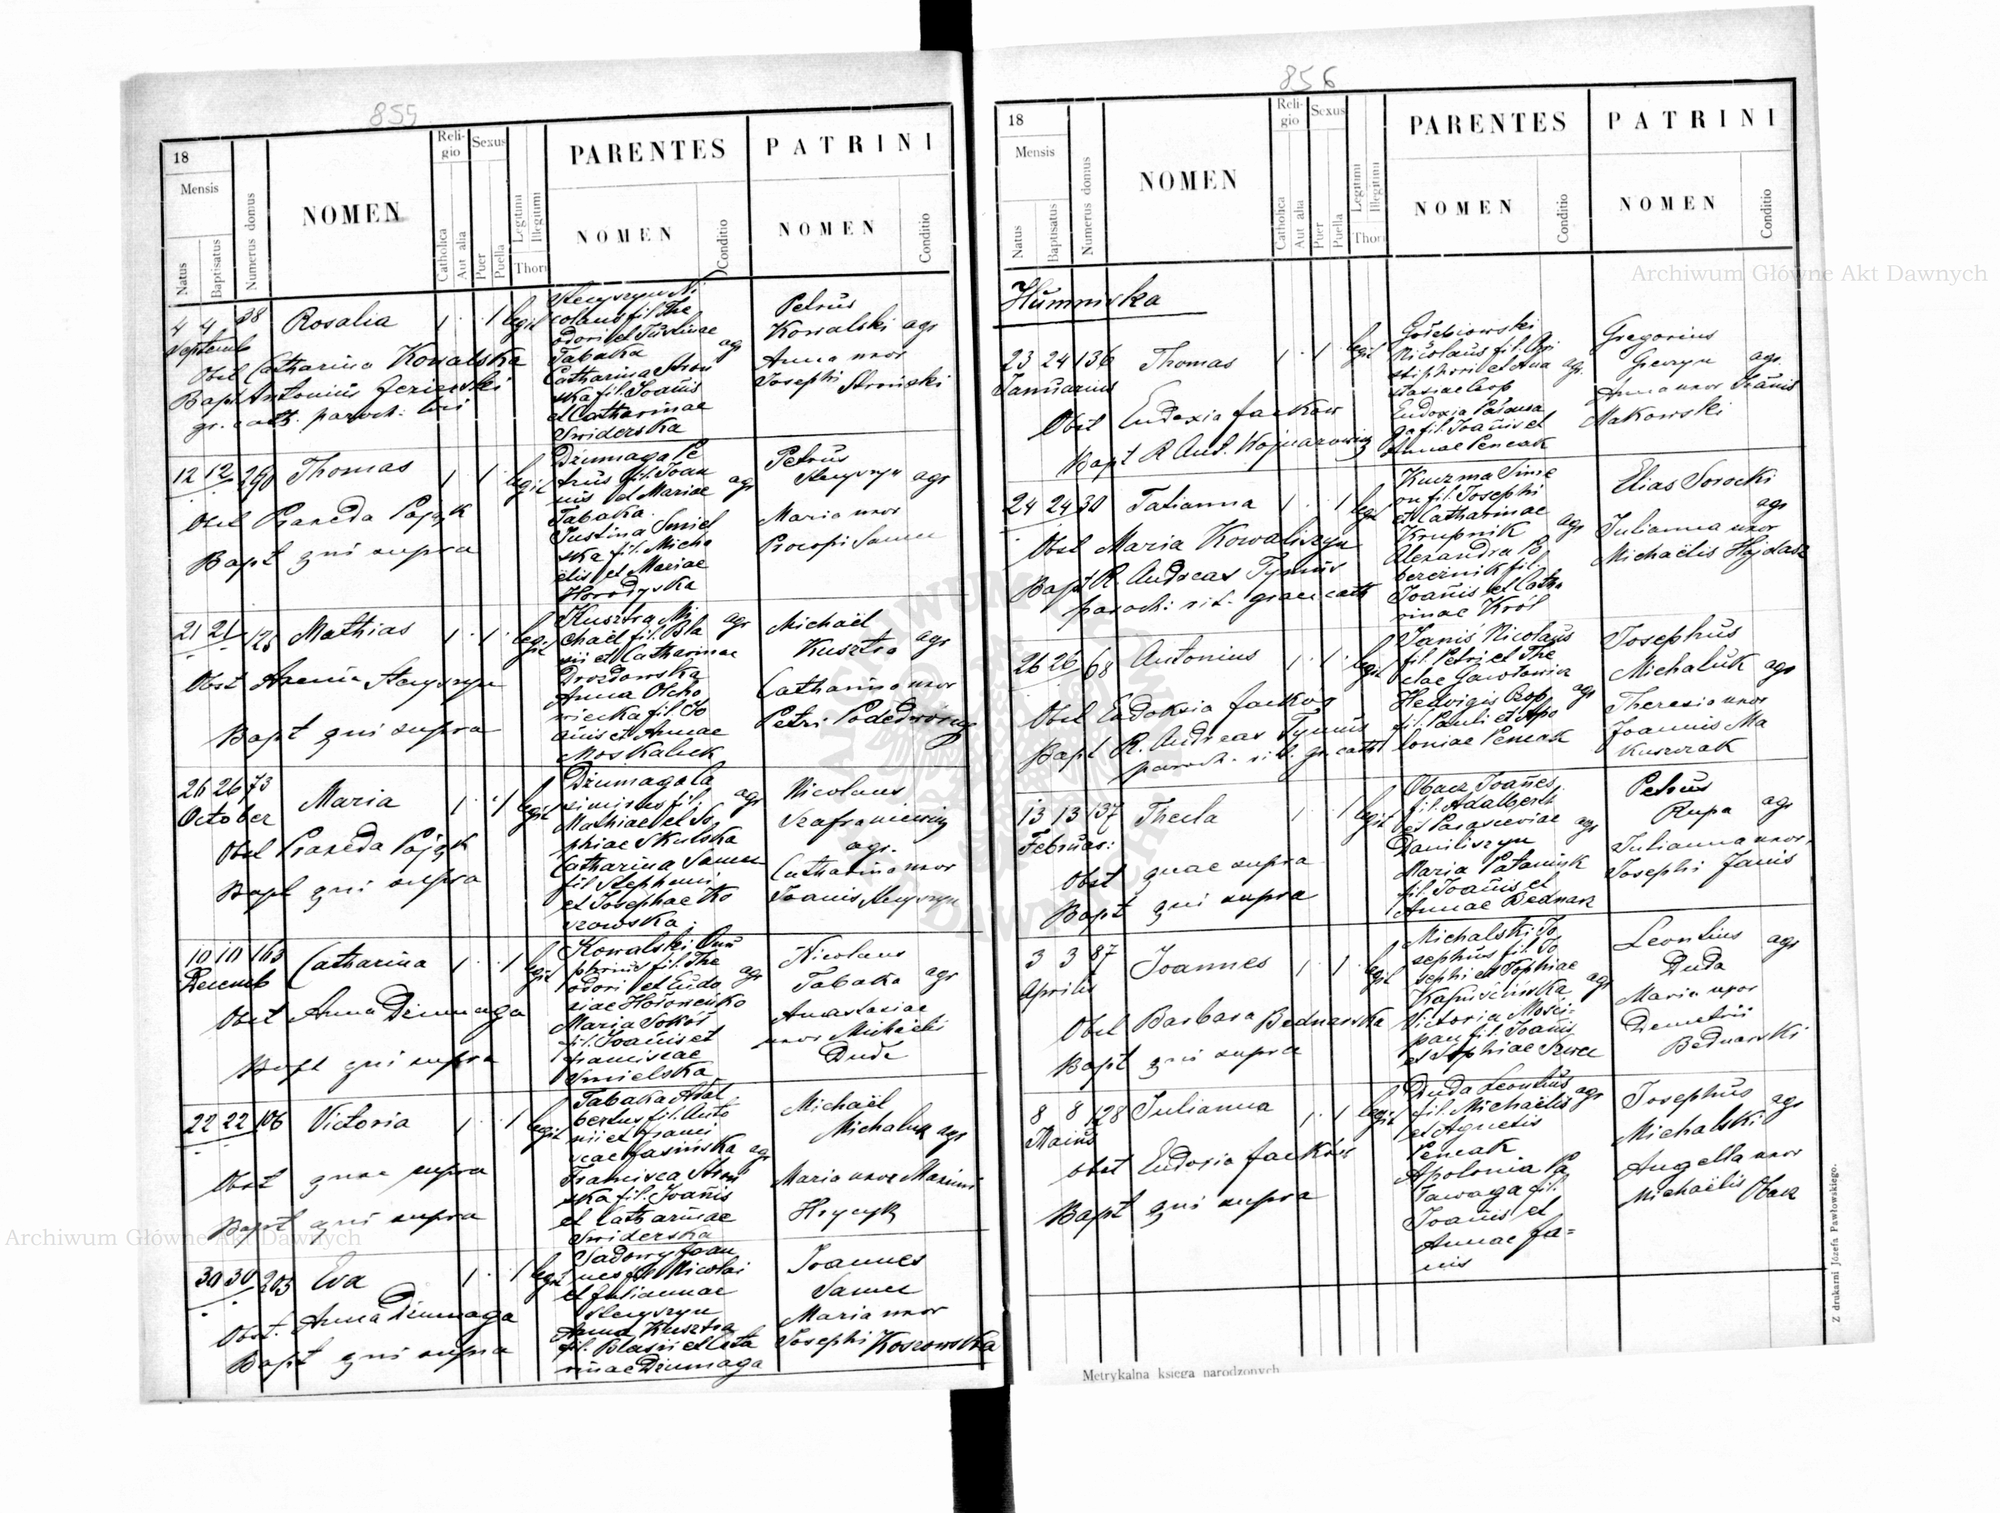 855
18
Mensis
Natus
Baptisatus
Numerus domus
NOMEN
Religio
Catholica
Aut alia
Sexus
Puer
Puella
Legitimi
Illegitimi
Thori
PARENTES
NOMEN
Conditio
PATRINI
NOMEN
Conditio
4 4 38 Rosalia 1 1 legit
Septemb
Obst Catharina Kowalska
Bapt Antonius
gr. cath. paroch: loci
colaus fil. The
Tabaka agr
ska fil. Joanis
et Catharinae
Swiderska
Petrus
Kowalski agr
Anna uxor
Josephi Stroński
12 12 290 Thomas 1 1 legit
Obst Praxeda Pająk
Bapt qui supra
Dziumaga Pe
trus fil. Joan
nis et Mariae agr
Tabaka
Justina Smiel
ska fil. Micha
ëlis et Mariae
Horodyska
Petrus
Stenyszyn agr
Maria uxor
Procopi Samec
21 21 125 Mathias 1 1 legit
Obst Stenyszyn
Bapt qui supra
Kusztra Mi agr
chaël fil. Bla
sii et Catharinae
Drozdowska
Anna Olcho
wiecka fil. Jo
anis et Annae
Moskaluk
Michaël
Kusztra agr
Catharina uxor
Petri
26 26 73
October Maria 1 1 legit
Obst Praxeda Pająk
Bapt qui supra
Dziumaga Ca
simirus fil. agr
Mathiae et So
phiae Skulska
Catharina Samec
fil Stephani
et Josephae Ko
szowska
Nicolaus
Szafraniewicz
agr.
Catharina uxor
Joanis Stenyszyn
10 10 163 Catharina 1 1 legit
Decemb
Obst Anna Dziumaga
Bapt qui supra
Kowalski Onu
phrius fil. The
odori et Eudo agr
xiae
Maria Sokół
fil. Joanis et
Franciscae
Smielska
Nicolaus
Tabaka agr
Anastasiae
uxor Michaeli
Duda
22 22 106 Victoria 1 1 legit
Obst quae supra
Bapt qui supra
Tabaka Adal
bertus fil. Anto
nii et Franci
scae Jasińska agr
Francisca Stroń
ska fil. Joanis
et Catharinae
Swiderska
Michaël
Michaluk agr
Maria uxor Maximi
Hrycyk
30 30 203 Eva 1 1 legit
Obst. Anna Dziumaga
Bapt qui supra
Sadowy Joan
nes fil Nicolai
et Juliannae
Stenyszyn
Anna Kusztra
fil. Blasii et Cata
rinae Dziumaga
Joannes
Samec
Maria uxor
Josephi Koszowska
856
18
Mensis
Natus
Baptisatus
Numerus domus
NOMEN
Religio
Catholica
Aut alia
Sexus
Puer
Puella
Legitimi
Illegitimi
Thori
PARENTES
NOMEN
Conditio
PATRINI
NOMEN
Conditio
Humniska
23 24 136 Thomas 1 1 legit
Januarius
Obst Eudoxia Jacków
Bapt R Ant. Wojnarowicz
Nicolaus fil. Agr
stasiae Czop
fil. Joanis et
Annae Pencak
Gregorius
agr
Anna uxor Joanis
Makowski
24 24 30 Tatianna 1 1 legit
Obst Maria Kowaliszyn
Bapt R. Andreas Tymus
paroch: rit. graeci cath
Kuczma Sime
on fil. Josephi
et Catharinae
Krupnik agr
Alexandra Po
bereżnik fil.
Joanis et Catha
rinae Król
Elias Sorocki
agr
Julianna uxor
Michaëlis Hajdasz
26 26 68 Antonius 1 1 legit
Obst Eudoksia Jacków
Bapt R. Andreas Tymus
paroch. rit. gr cath
Janis Nicolaus
fil. Petri et The
clae
Hedvigis Czop agr
fil. Pauli et Apo
loniae Pencak
Josephus
Michaluk agr
Theresia uxor
Joannis Ma
kuszczak
13 13 137 Thecla 1 1 legit
Februar:
Obst quae supra
Bapt qui supra
Obacz Joannes
fil. Adalberti
et Parasceviae agr
Daniliszyn
Maria
fil. Joanis et
Annae Bednarz
Petrus
Rupa agr
Julianna uxor
Josephi Janis
3 3 87 Joannes 1 1 legit
Aprilis
Obst Barbara Bednarska
Bapt qui supra
Michalski Jo
sephus fil. Jo
sephi et Sophiae
Kapuścińska agr
Victoria Mości
pan fil. Joanis
et Sophiae Szwec
Leontius agr
Duda
Maria uxor
Demetrii
Bednarski
8 8 128 Julianna 1 1 legit
Maius
Obst Eudoxia Jacków
Bapt qui supra
Duda Leontius agr
fil. Michaëlis
et Agnetis
Pencak
Apolonia Pa
fil.
Joanis et
Annae Ja=
nis
Josephus agr
Michalski
Angella uxor
Michaëlis Obacz
Metrykalna księga narodzonych
Z drukarni Józefa Pawłowskiego.
Archiwum Główne Akt Dawnych
Archiwum Główne Akt Dawnych